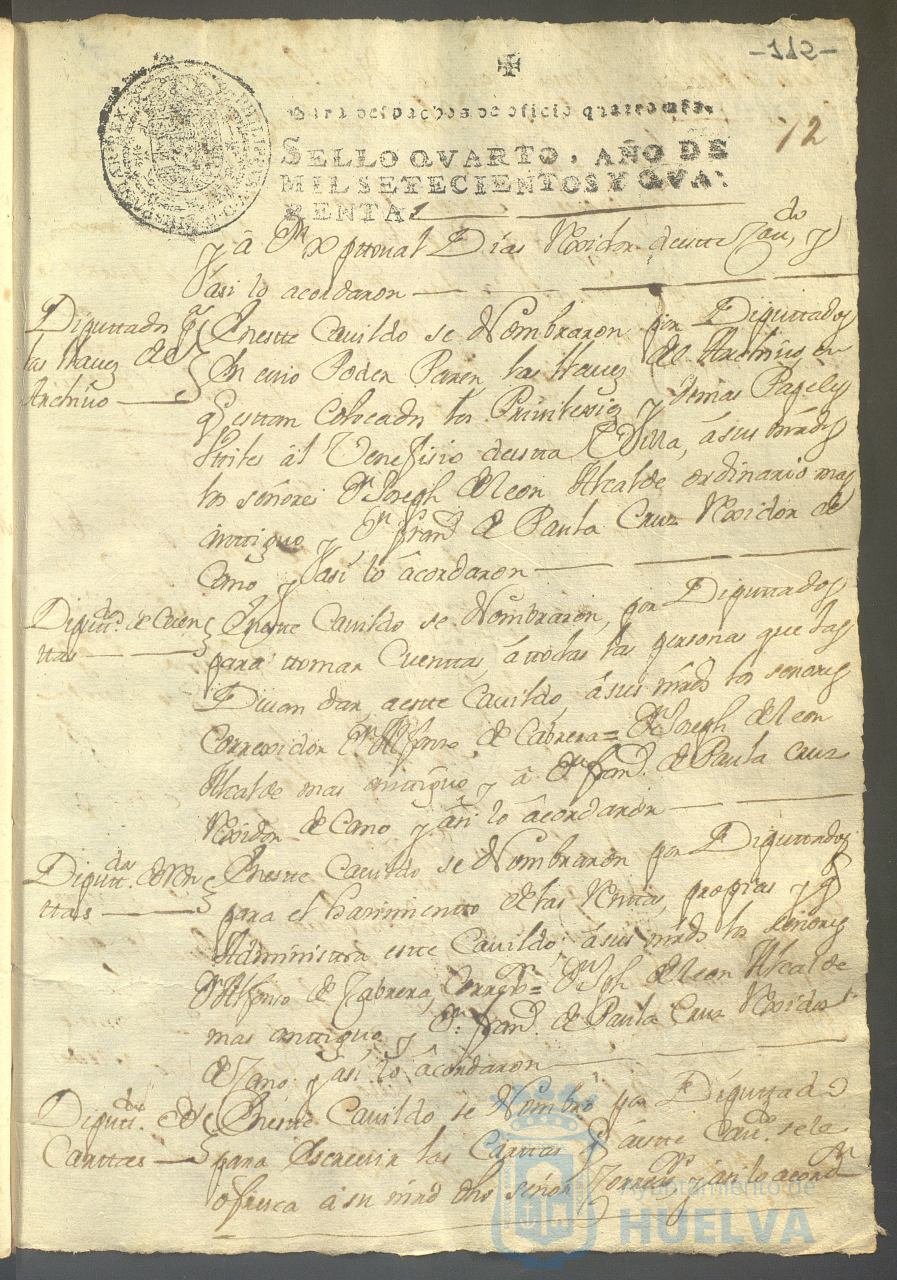 -112-
12
Para despachos de oficio quatro mrs.
SELLO QVARTO, AÑO DE
MIL SETECIENTOS Y QVA-
RENTA.
y â Dn Xptoual Dias Rexidor deeste Caudo, y
âsi lo acordaron
Diputtados pa
las llauez del
Archiuo
Eneste Cauildo se Nombraron por Diputtados
En cuio Poder Paren las llauez del Archiuo en
q estan Colocados los Privilexios y demas Papeles
Vtiles âl Venefisio deesta Villa, âsus mrds
los señores Dn Joseph de leon Alcalde ordinario mas
anttiguo y Dn Frando de Paula Cruz Rexidor de
Cano y âsi lô âcordaron
Diputtdos de Cuen
ttas
Eneste Cauildo se Nombraron, por Diputtados
para ttomar Cuenttas, âttodas las personas que las
Deuan dar, aeste Cauildo, âsus mrds los señores
Correxidor Dn Alfonso de Cabrera = Dn Joseph de leon
Alcalde mas antiguo y â Dn Frando de Paula Cruz
Rexidor de Cano y âsi lo âcordaron
Diputtdos de Ren
ttas
Eneste Cauildo se Nombraron por Diputtados
para el hasimiento de las Renttas, propias y q
Administra este Cauildo âsus mrds los señores
Dn Alfonso de Cabrera, Corregor = Dn Jph de leon Alcalde
mas anttiguo y Dn Frando de Paula Cruz Rexidor
de Cano y âsi lô âcordaron
Diputtdo de
Carttas
Eneste Cauildo se Nombró por Diputtado
para Escreuir las Carttas q âeste Caudo se le
ofresca â su mrd dho señor Corregor y âsi lo acordn
Ayuntamiento de
HUELVA